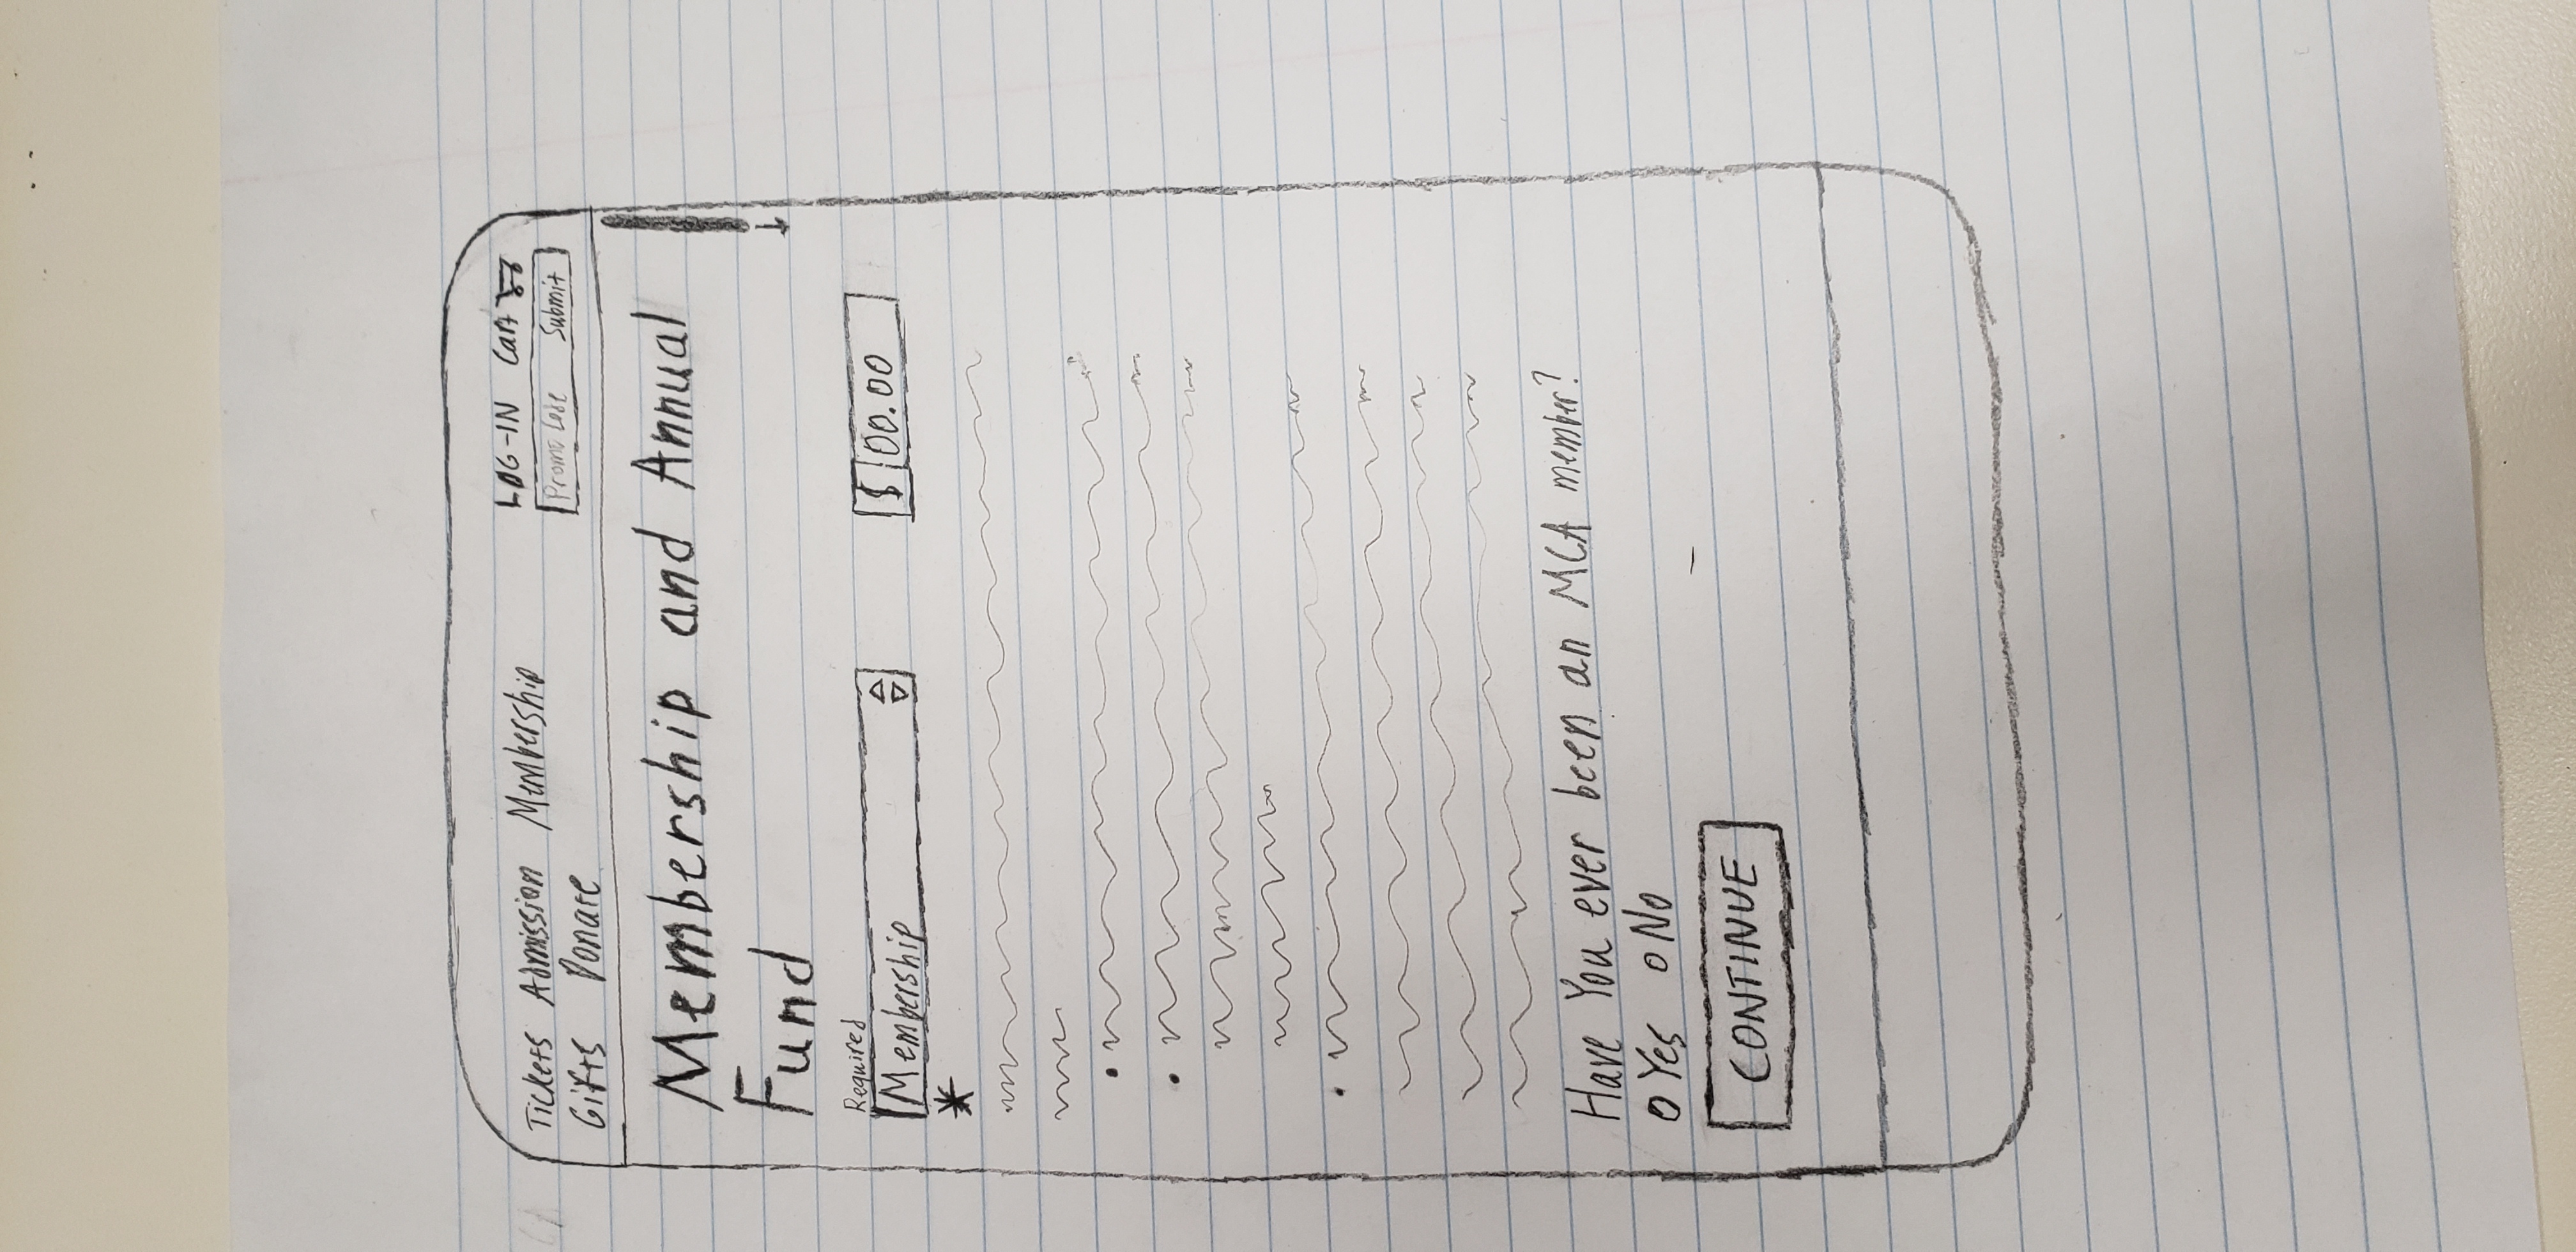 Tickets Admission Membership
Gifts Donate
LOG-IN Cart
Promo Code Submit
Membership and Annual
Fund
Required
Membership
$ 00.00
*
Have You ever been an MCA member?
Yes No
CONTINUE